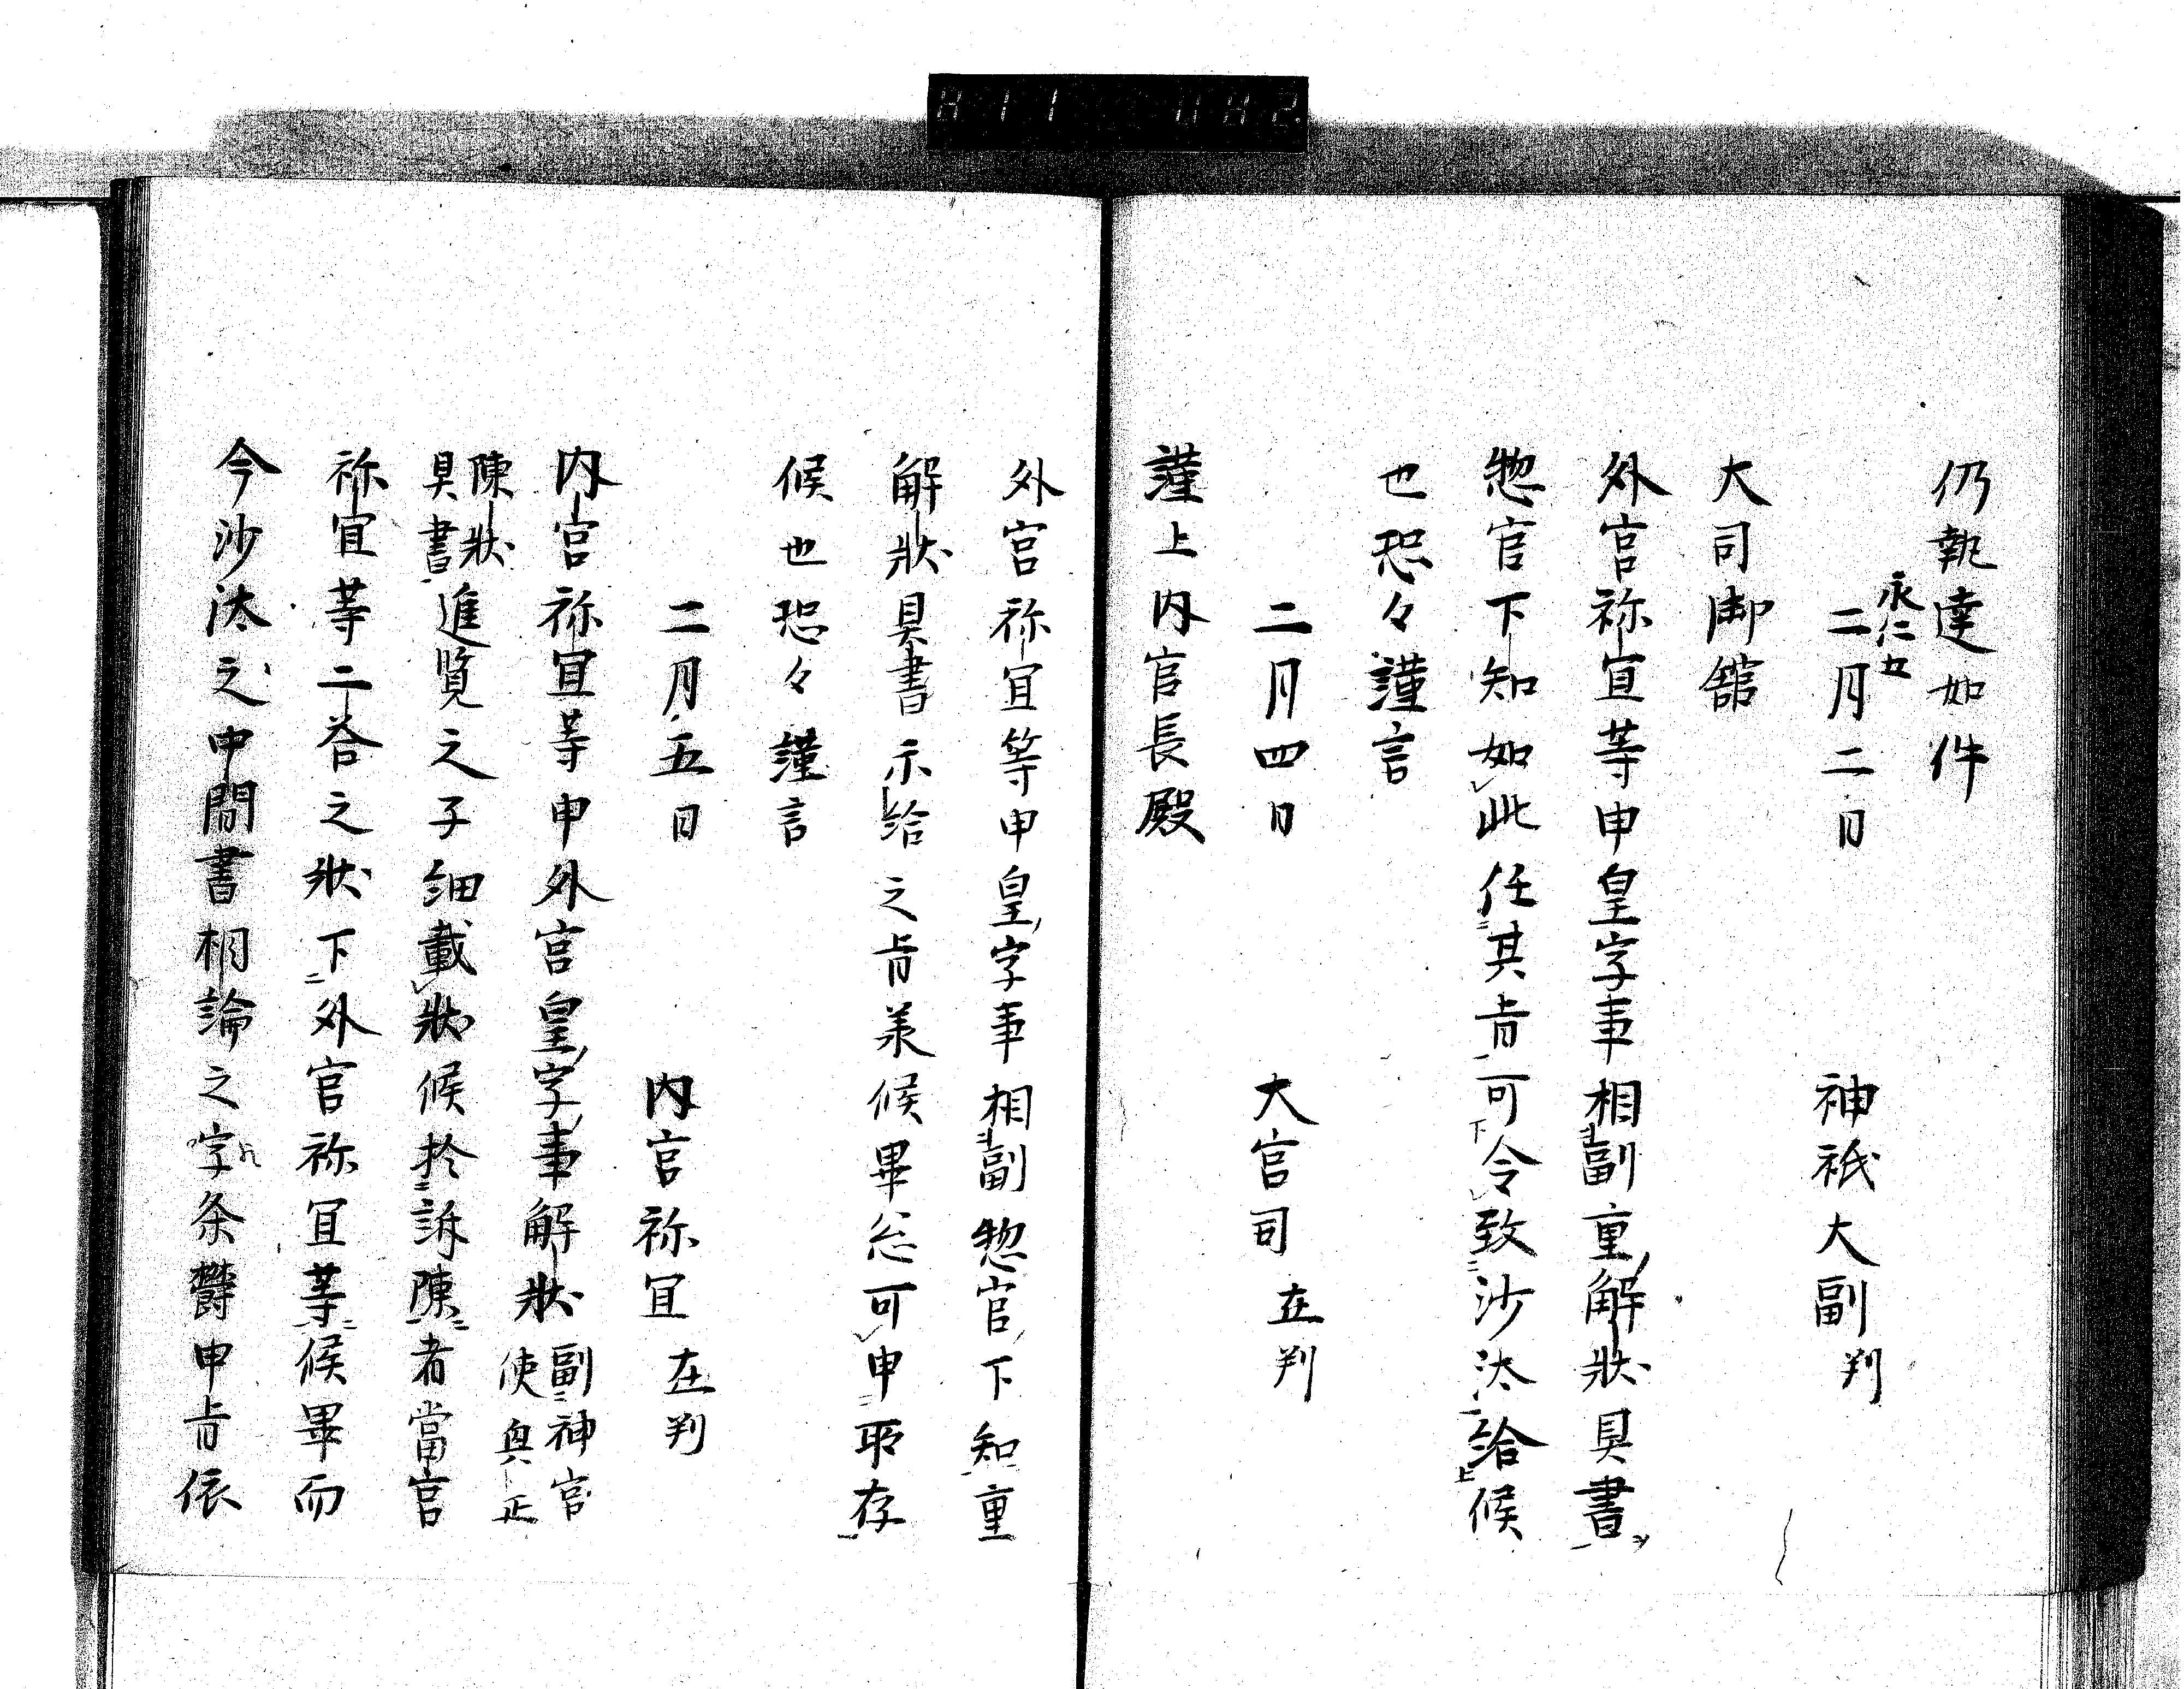 仍執達如件
永仁五
二月二日 神祇大副判
大司御舘
外宮祢宜等申皇字事相副重解状具書
惣官下知如此任其旨可令致沙汰給候
也恐々謹言
二月四日 大宮司在判
謹上内宮長殿
外宮祢宜等申皇字事相副惣官下知重
解状具書示給之旨羕候畢忩可申所存
候也恐々謹言
二月五日 内宮祢宜在判
内宮祢宜等申外宮皇字事解状副神官使與正
陳状具書進覧之子細載状候於訴陳者當宮
祢宜等二荅之状下外宮祢宜等候畢而
今沙汰之中間書相論之字条欝申旨依